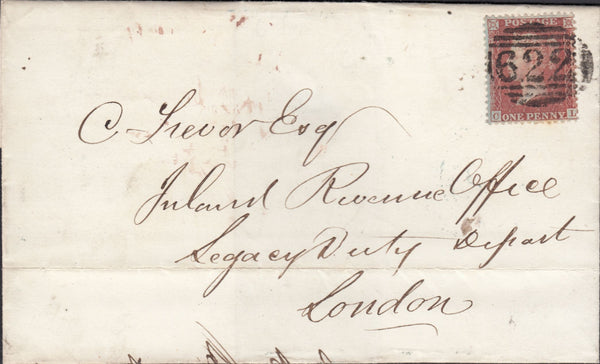 POSTAGE
622
C
ONE PENNY
C Trevor Esq
Inland Revenue Office
Legacy Duty Depart
London